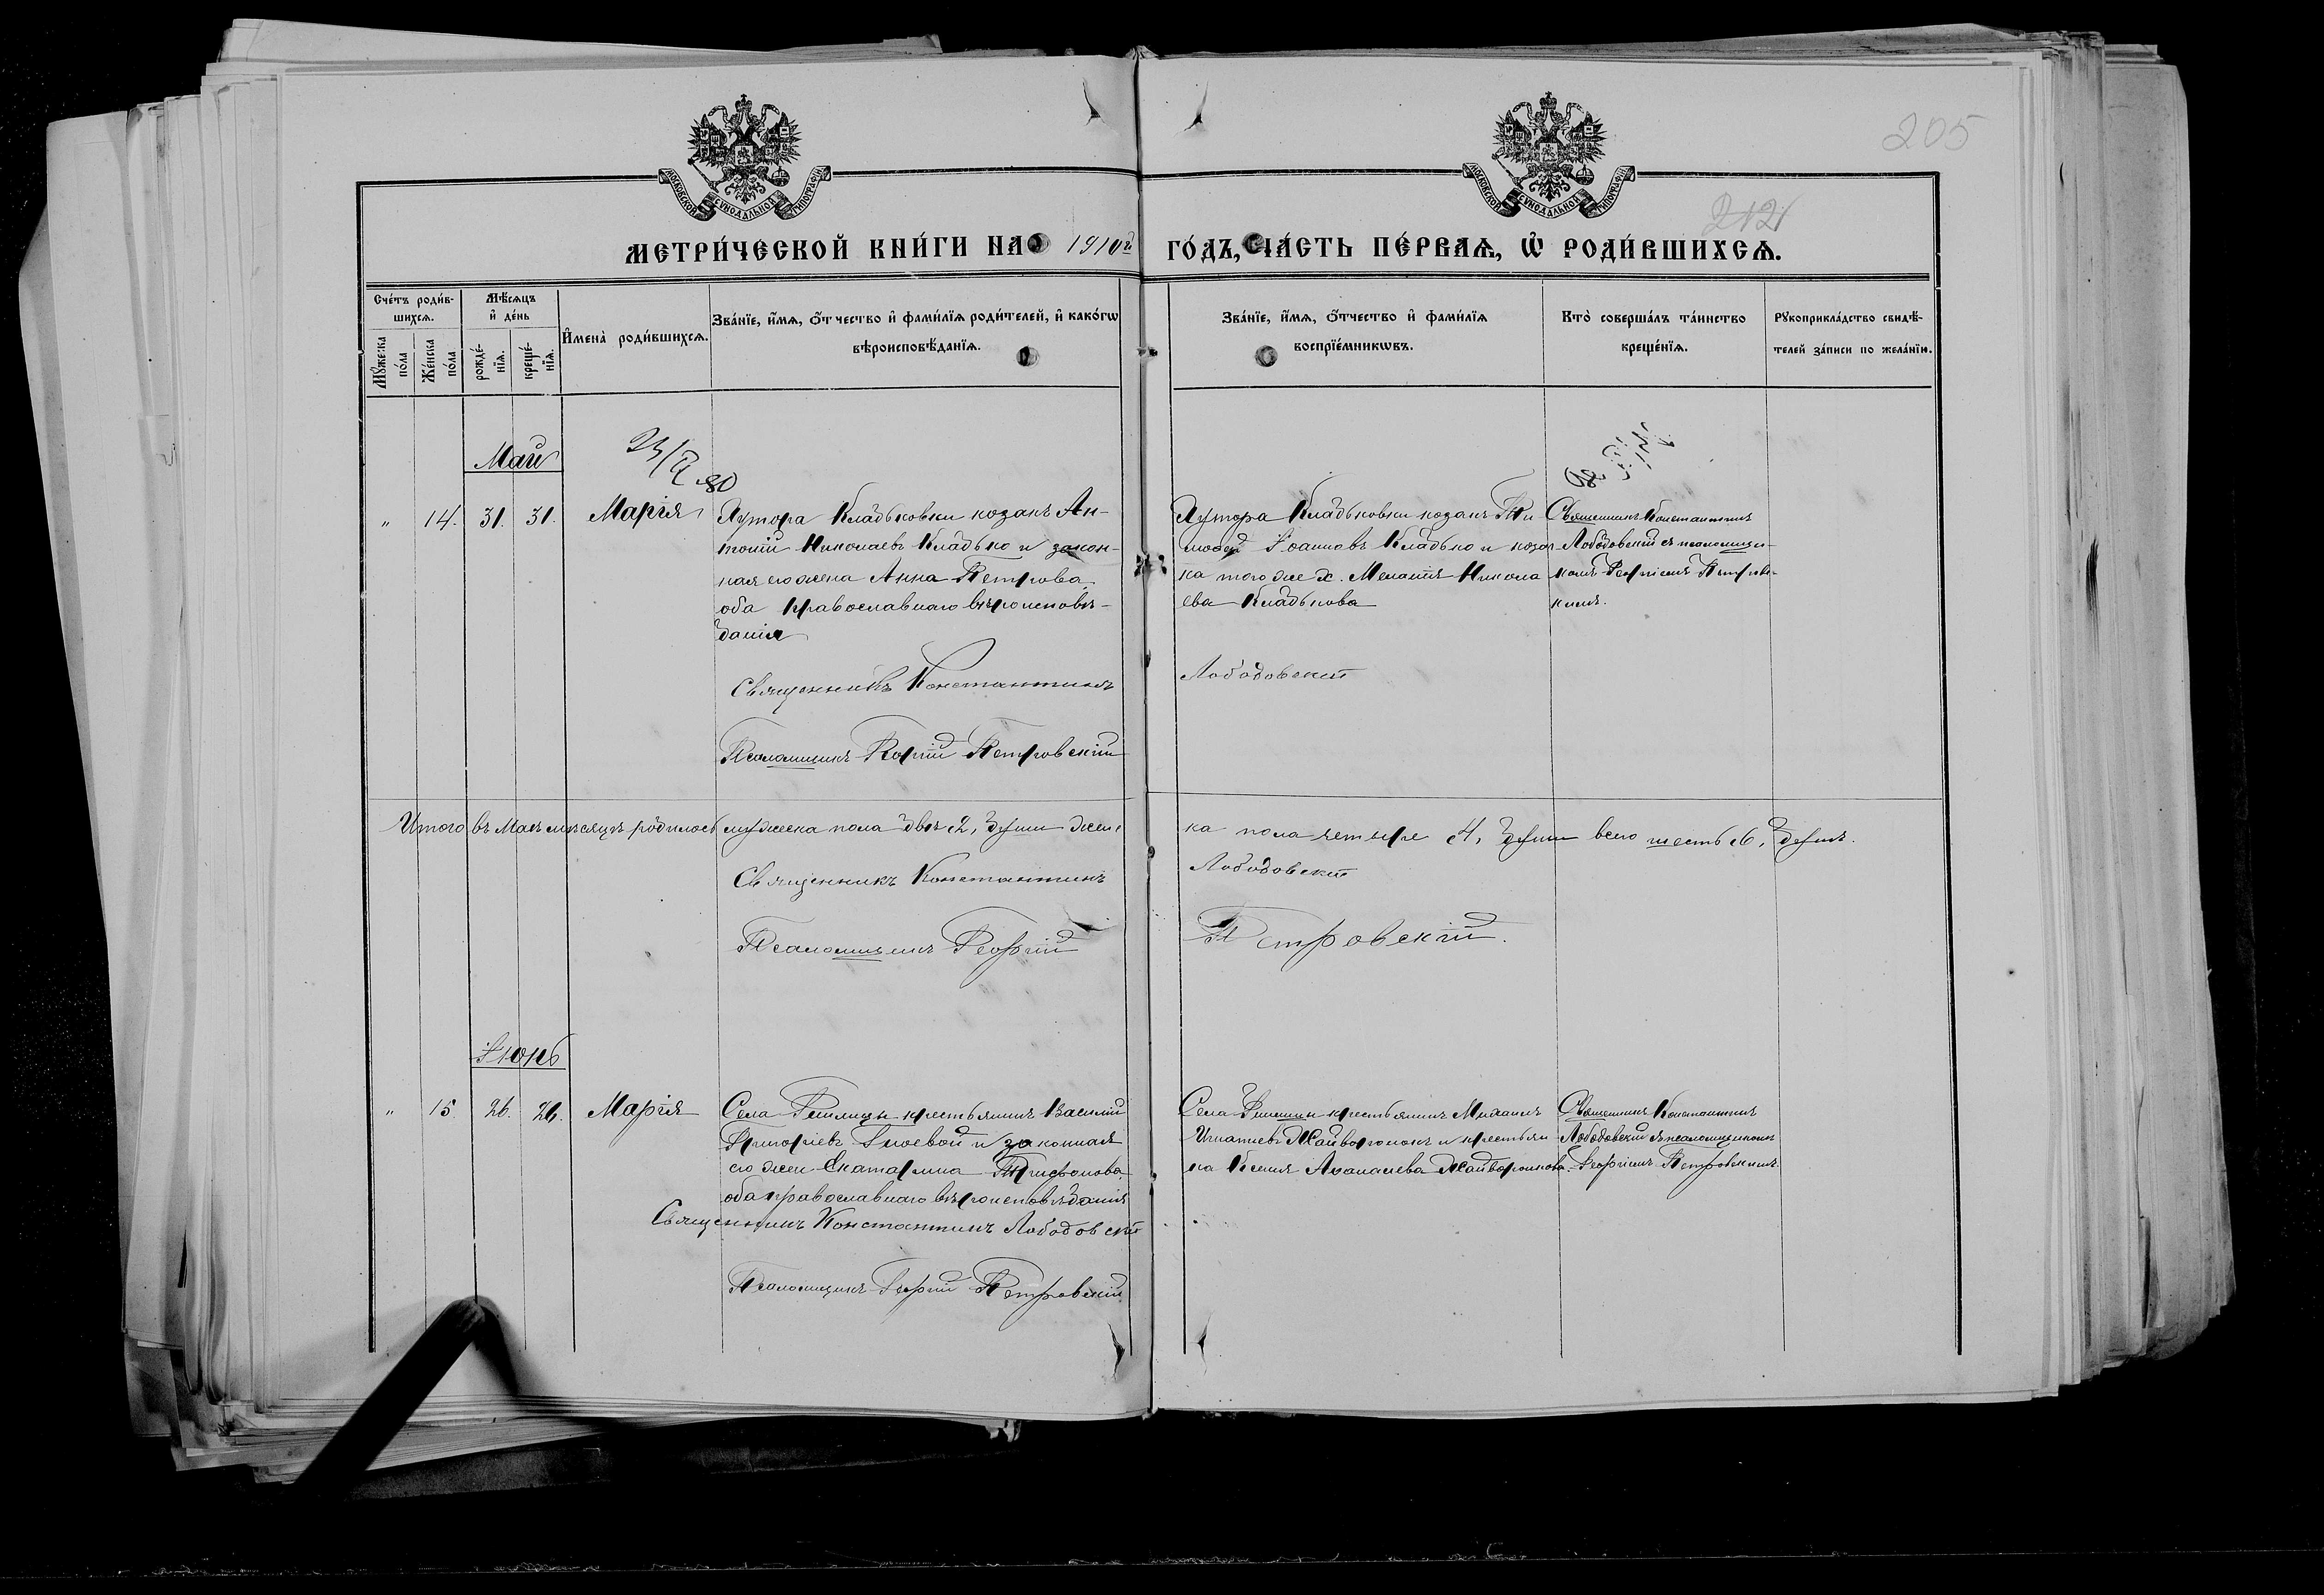 205
212
МОСКОВСКОЙ СѴНОДАЛЬНОЙ ТИПОГРАФІИ
МОСКОВСКОЙ СѴНОДАЛЬНОЙ ТИПОГРАФІИ
МЕТРИ́ЧЕСКОЙ КНИ́ГИ НА 1910й ГО́ДЪ, ЧА́СТЬ ПЕ́РВАѦ, Ѡ҆ РОДИ́ВШИХСѦ.
Сче́тъ роди́в-
шихсѧ.
Мꙋ́жеска по́ла
Же́нска по́ла
Мѣ́сѧцъ
и҆ де́нь
рожде́-
нїѧ.
креще́-
нїѧ.
И҆мена̀ роди́вшихсѧ.
Зва́нїе, и҆́мѧ, ѻ҆́тчество и҆ фами́лїѧ роди́телей, и҆ како́гѡ
вѣроисповѣ́данїѧ.
Зва́нїе, и҆́мѧ, ѻ҆́тчество и҆ фами́лїѧ
воспрїе́мникѡвъ.
Кто̀ соверша́лъ та́инство
креще́нїѧ.
Рꙋкоприкла́дство свидѣ́-
телей за́писи по жела́нїю.
Май
" 14. 31. 31. Марія
Хутора Кладьковки козакъ Ан-
тоній Николаевъ Кладько и закон-
ная его жена Анна Петрова
оба православнаго вѣроисповѣ-
данія
Священникъ Константинъ
Лободовскій
Псаломщикъ Георгій Петровскій
Хутора Кладьковки козакъ Ти
моѳей Іоанновъ Кладько и козач
ка того же х. Меланія Никола
ева Кладькова
Священникъ Константинъ
Лободовскій съ псаломщи-
комъ Георгіемъ Петров-
кимъ.
Итого въ Маѣ мѣсяцѣ родилось мужеска пола двѣ 2, души женс
ка пола четыре 4, души всего шесть 6, душъ.
Священникъ Константинъ
Лободовскій
Псаломщикъ Георгій
Петровскій.
Іюнь
" 15. 26. 26. Марія
Села крестьянинъ Василій
Григоріевъ и законная
его жена Екатерина
оба православнаго вѣроисповѣданія
Священникъ Константинъ Лободовскій
Псаломщикъ Георгій Петровскій
Села крестьянинъ Михаилъ
Игнатіевъ Жайворонокъ и крестьян
ка Ксенія Жайворонкова.
Священникъ Константинъ
Лободовскій съ псаломщикомъ
Георгіемъ Петровскимъ.